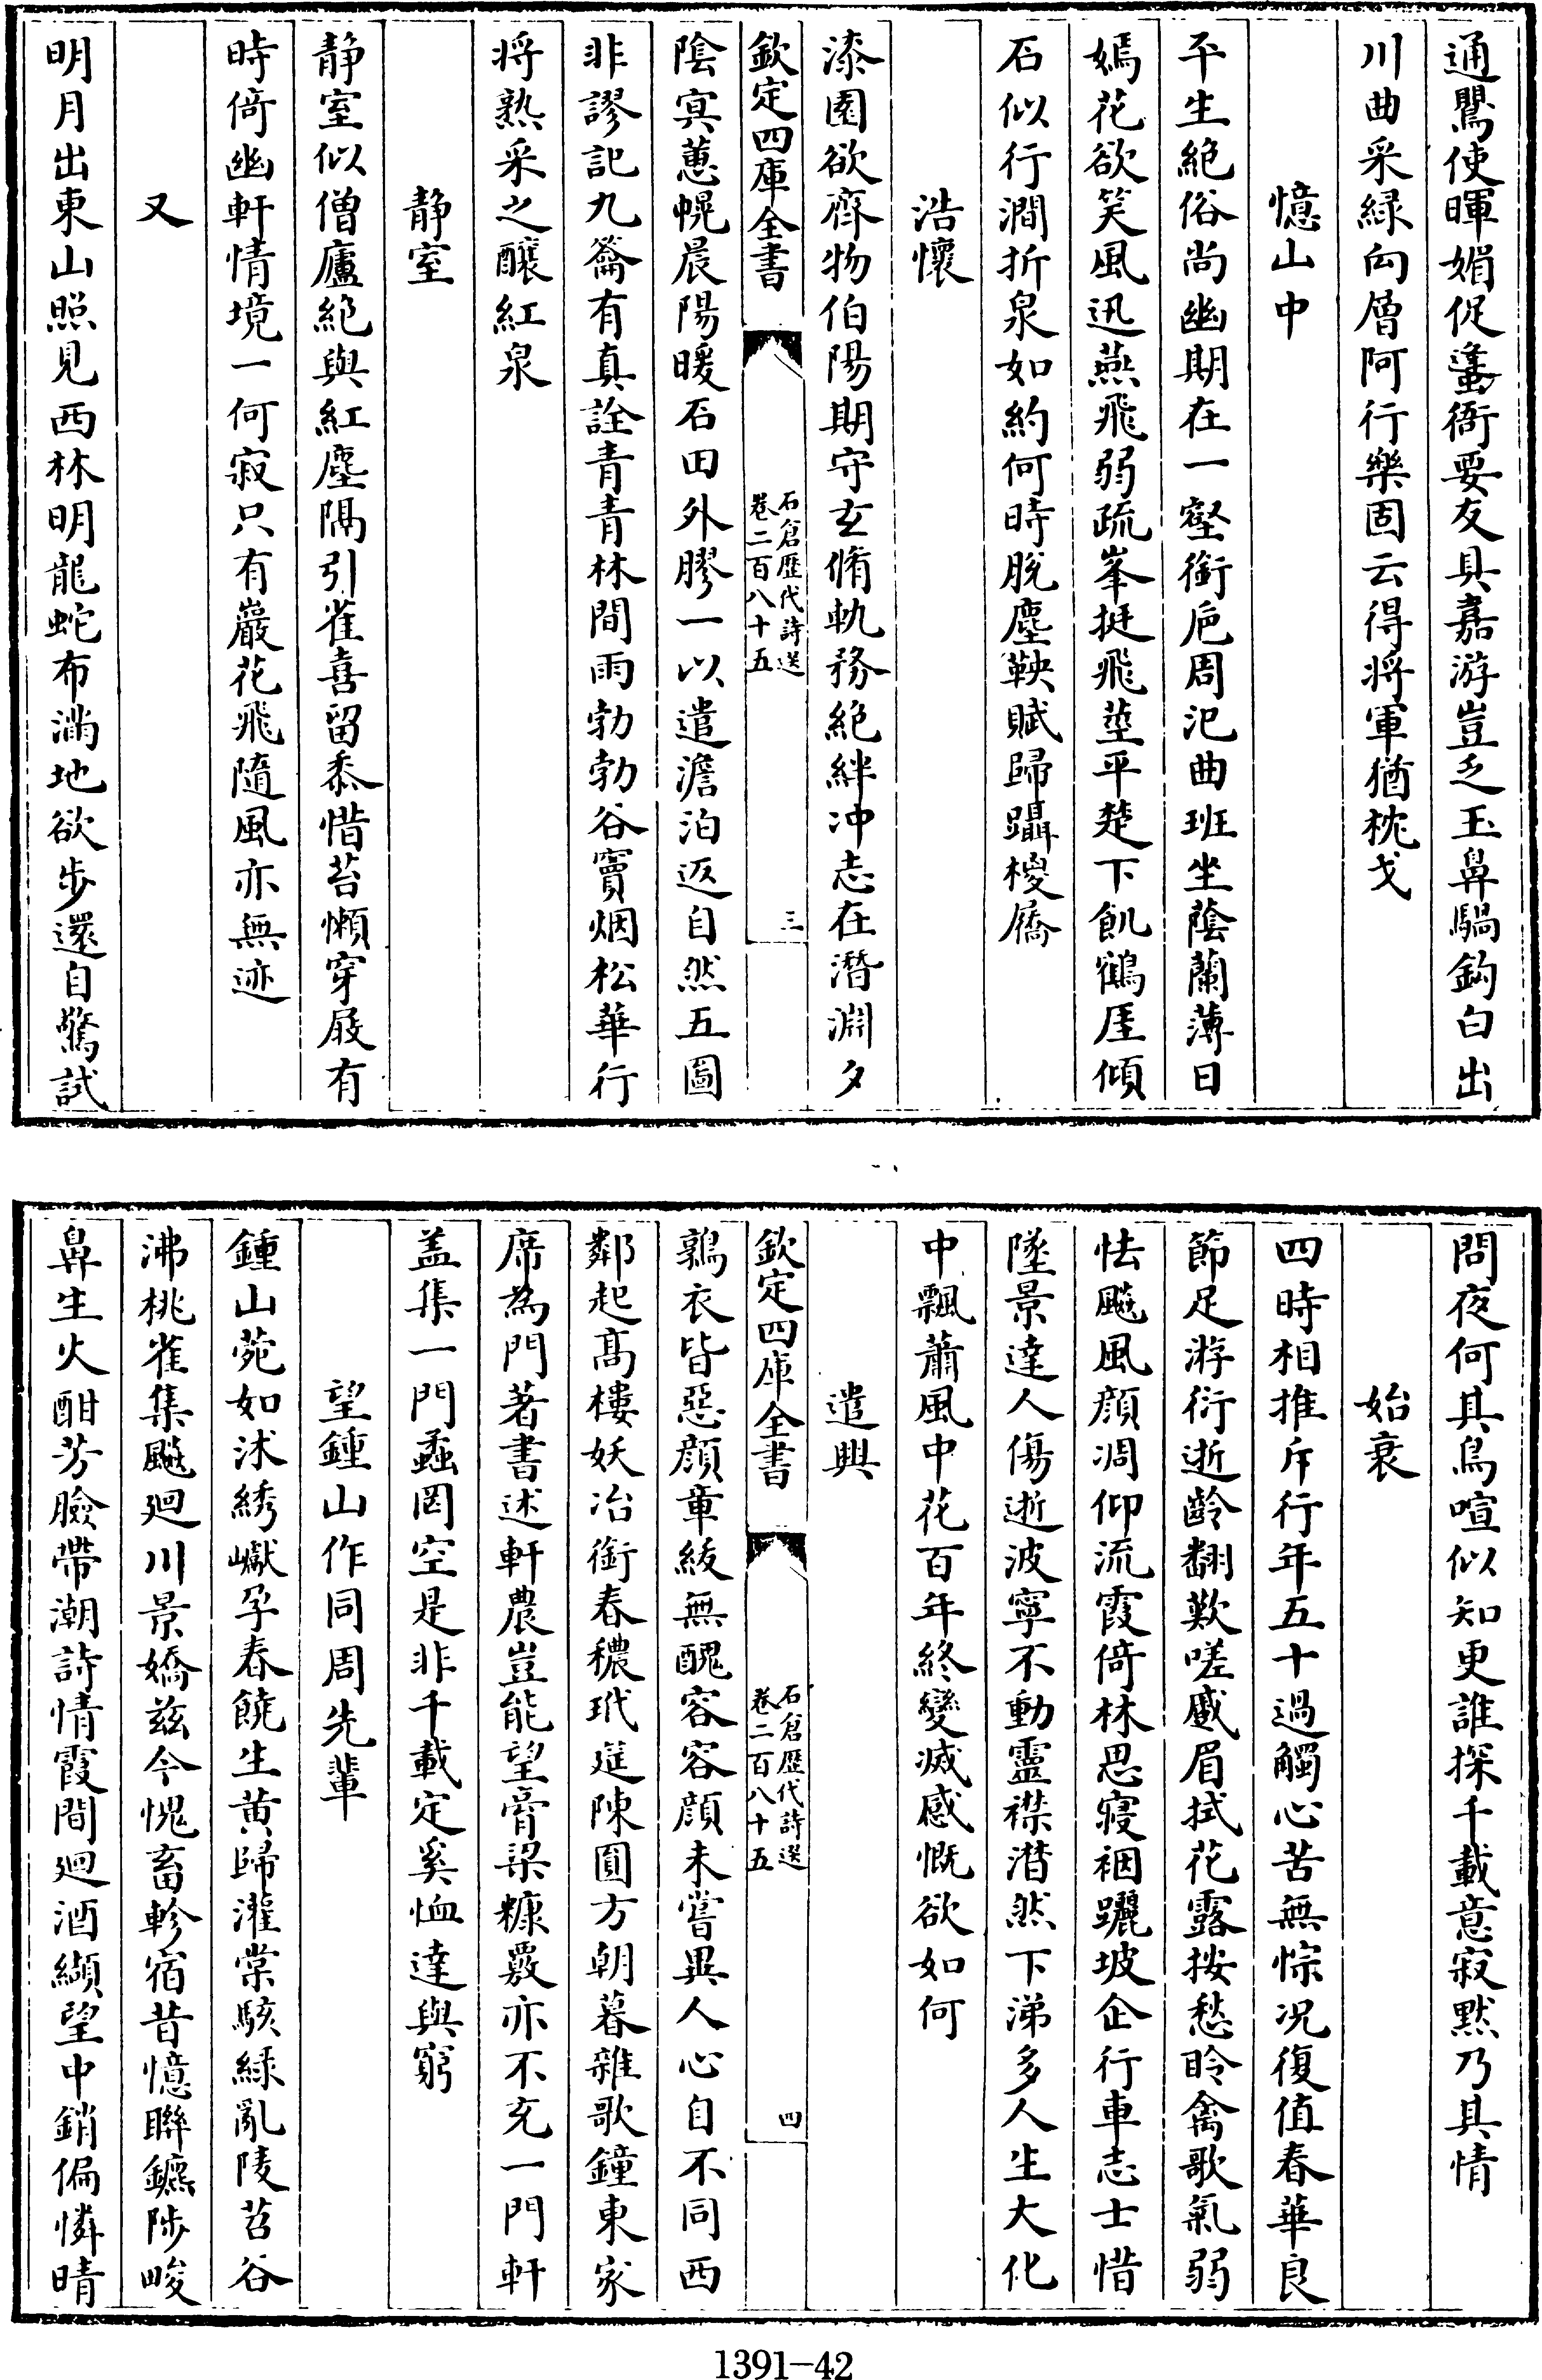 通鷖使暉媚促蠭衙要友具嘉游豈乏玉鼻騧鈎白出
川曲采緑向層阿行樂固云得将軍猶枕戈
憶山中
平生絶俗尚幽期在一壑銜巵周氾曲班坐蔭蘭薄日
嫣花欲笑風迅燕飛弱疏峯挺飛莖平楚下飢鶴厓傾
石似行澗折泉如約何時脱塵鞅賦歸躡椶屩
浩懷
漆園欲齊物伯陽期守玄脩軌務絶絆冲志在潛淵夕
欽定四庫全書
石倉歴代詩選
卷二百八十五
三
陰寅蕙幌晨陽暖石田外膠一以遣澹泊返自然五圖
非謬記九籥有真詮青青林間雨勃勃谷竇烟松華行
将熟采之釀紅泉
静室
静室似僧廬絶與紅塵隔引雀喜留黍惜苔懶穿屐有
時倚幽軒情境一何寂只有巖花飛隨風亦無迹
又
明月出東山照見西林明龍蛇布滿地欲步還自驚試
問夜何其鳥喧似知更誰探千載意寂黙乃其情
始衰
四時相推斥行年五十過觸心苦無悰况復值春華良
節足游衍逝齡翻歎嗟慼眉拭花露按愁聆禽歌氣弱
怯颷風顔凋仰流霞倚林思寢裀躧坡企行車志士惜
墜景達人傷逝波寧不動靈襟潸然下涕多人生大化
中飄蕭風中花百年終變滅感慨欲如何
遣興
欽定四庫全書
石倉歴代詩選
卷二百八十五
四
鶉衣皆惡顔章綾無醜容容顔未嘗異人心自不同西
鄰起髙樓妖冶銜春穠玳筵陳圓方朝暮雜歌鐘東家
席為門著書述軒農豈能望膏梁糠覈亦不充一門軒
盖集一門孟罔空是非千載定奚恤達與窮
望鍾山作同周先輩
鍾山菀如沭綉巘孕春饒生黄歸灌棠駭緑亂陵苕谷
沸桃雀集颷廻川景嬌兹今愧畜軫宿昔憶聯鑣陟峻
鼻生火酣芳臉帶潮詩情霞間廻酒纈望中銷偏憐晴
1391—42